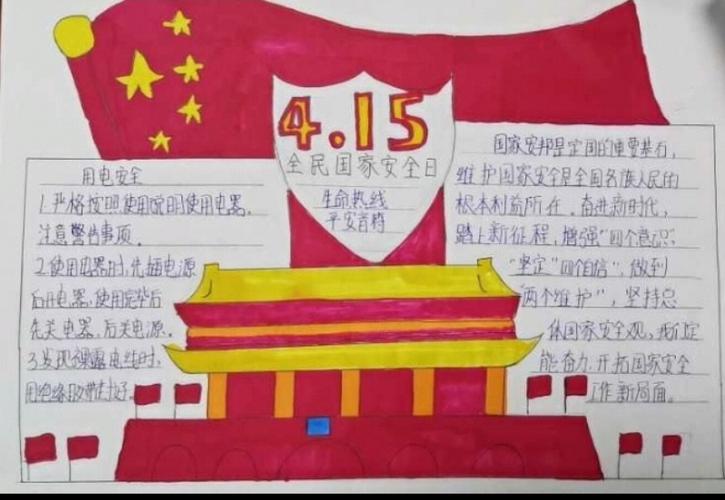 4.15
全民国家安全日
生命热线
平安首稃
用电安全
1.严格按照使用说明使用电器,
注意警告事项。
2.使用电器时,先插电源
后开电器,使用完毕后
先关电器,后关电源。
3.发现裸露电线时,
用绝缘胶带封好。
国家安邦是定国的重要基石,
维护国家安全是全国各族人民的
根本利益所在。奋进新时代,
踏上新征程,增强"四个意识"
"坚定"四个自信",做到
"两个维护",坚持总
体国家安全观,我们定
能奋力开拓国家安全
工作新局面。